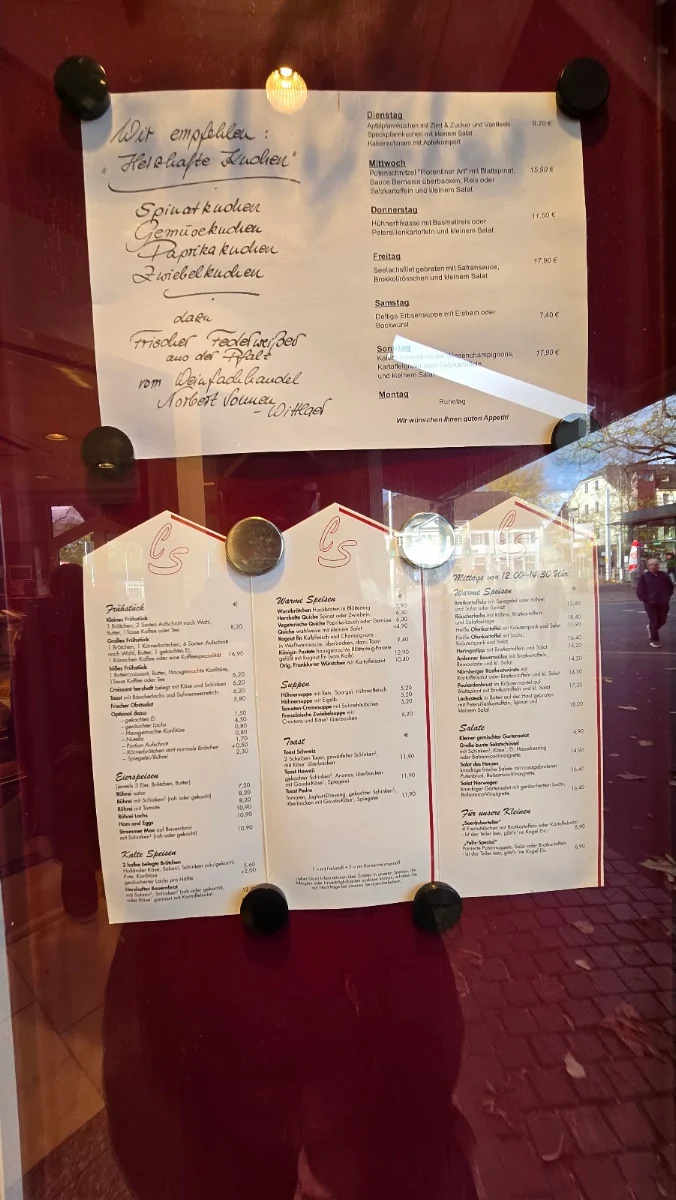 Wir empfehlen:
"Herzhafte Kuchen"
Spinatkuchen
Gemüsekuchen
Paprikakuchen
Zwiebelkuchen
dazu
Frischer Federweißer
aus der Pfalz
vom Weinfachhandel
Norbert
- Wittlaer
Dienstag
Apfelpfannkuchen mit Zimt & Zucker und Vanilleeis 9,20 €
Speckpfannkuchen mit kleinem Salat
Kaiserschmarrn mit Apfelkompott
Mittwoch
Putenschnitzel "Florentiner Art" mit Blattspinat, 15,90 €
Sauce Bernaise überbacken, Reis oder
Salzkartoffeln und kleinem Salat
Donnerstag
Hühnerfrikasse mit Basmatireis oder 11,50 €
Petersilienkartoffeln und kleinem Salat
Freitag
Seelachsfilet gebraten mit Safransauce, 17,90 €
Brokkoliröschen und kleinem Salat
Samstag
Deftige Erbsensuppe mit Eisbein oder 7,40 €
Bockwurst
Sonntag
Wiesenchampignons, 17,90 €
Kartoffelgratin oder Salzkartoffeln
und kleinem Salat
Montag
Ruhetag
Wir wünschen Ihnen guten Appetit!
CS
Frühstück €
Kleines Frühstück
1 Brötchen, 2 Sorten Aufschnitt nach Wahl,
Butter, 1 Tasse Kaffee oder Tee 8,20
Großes Frühstück
1 Brötchen, 1 Körnerbrötchen, 4 Sorten Aufschnitt
nach Wahl, Butter, 1 gekochtes Ei,
1 Kännchen Kaffee oder eine Kaffeespezialität 16,90
Süßes Frühstück
1 Buttercroissant, Butter, Hausgemachte Konfitüre,
1 Tasse Kaffee oder Tee 6,20
Croissant herzhaft belegt mit Käse und Schinken 6,20
Toast mit Räucherlachs und Sahnemeerrettich 6,20
Frischer Obstsalat 5,80
Optional dazu:
- gekochtes Ei 1,50
- geräucherter Lachs 4,50
- Hausgemachte Konfitüre 0,80
- Nutella 0,80
- Portion Aufschnitt 1,70
- Körnerbrötchen statt normale Brötchen +0,50
- Spiegelei/Rührei 2,30
Eierspeisen
(jeweils 3 Eier, Brötchen, Butter)
Rührei natur 7,20
Rührei mit Schinken² (roh oder gekocht) 8,20
Rührei mit Tomaten 8,20
Rührei Lachs 10,90
Ham and Eggs 10,90
Strammer Max auf Bauernbrot
mit Schinken² (roh oder gekocht) 10,90
Kalte Speisen
2 halbe belegte Brötchen
Holländer Käse, Salami, Schinken roh/gekocht, 5,60
Pute, Konfitüre
geräucherter Lachs pro Hälfte +2,00
Herzhaftes Bauernbrot
mit Salami², Schinken² (roh oder gekocht),
oder Käse¹ garniert mit Kartoffelsalat
CS
Warme Speisen €
Wurstbrötchen Hackbraten in Blätterteig 5,90
Herzhafte Quiche Spinat oder Zwiebeln 6,30
Vegetarische Quiche Paprika-lauch oder Gemüse 6,30
Quiche wahlweise mit kleinem Salat +4,90
Ragout fin Kalbfleisch und Champignons
in Weißweinsauce, überbacken, dazu Toast 9,40
Königin Pastete hausgemachte Blätterteig-Pastete
gefüllt mit Ragout fin (vom Kalb) 12,90
Orig. Frankfurter Würstchen mit Kartoffelsalat 10,40
Suppen
Hühnersuppe mit Reis, Spargel, Hühnerfleisch 5,20
Hühnersuppe mit Eigelb 5,20
Tomaten-Cremesuppe mit Sahnehäubchen 5,20
Französische Zwiebelsuppe mit
Croutons und Käse¹ überbacken 6,20
Toast €
Toast Schweiz
2 Scheiben Toast, gewürfelter Schinken²,
mit Käse¹ überbacken 11,90
Toast Hawaii
gekochter Schinken², Ananas, überbacken
mit Gouda-Käse¹, Spiegelei 11,90
Toast Pedro
Tomaten, Joghurt-Dressing, gekochter Schinken²,
überbacken mit Gouda-Käse¹, Spiegelei 11,90
CS
Mittags von 12.00-14.30 Uhr
Warme Speisen €
Bratkartoffeln mit Spiegelei oder Rührei
und Salat oder Spinat 13,90
Räucherlachs mit Rührei, Bratkartoffeln
und Salatbeilage 18,40
Heiße Ofenkartoffel mit Kräuterquark und Salat 11,90
Heiße Ofenkartoffel mit Lachs,
Kräuterquark und Salat 16,40
Heringsstipp mit Bratkartoffeln und Salat 14,20
Nürnberger Rostbratwürste mit
Kartoffelsalat oder Bratkartoffeln und kl. Salat
Lachssteak in Butter auf der Haut gebraten,
mit Petersilienkartoffeln, Spinat und
kleinem Salat 18,20
Salate
Kleiner gemischter Gartensalat 4,90
Große bunte Salatschüssel
mit Schinken², Käse¹, Ei, Hausdressing
oder Balsamico-Vinaigrette 14,90
Salat des Hauses
knackige frische Salate mit
Putenbrust, Balsamico-Vinaigrette 16,40
Salat Norwegen
knackiger Gartensalat mit geräuchertem Lachs,
Balsamico-Vinaigrette 16,40
Für unsere Kleinen
„Seeräuberteller"
4 Fischstäbchen mit Bratkartoffeln oder Kartoffelsalat
- Ist der Teller leer, gibt's 'ne Kugel Eis- 8,90
„Felix-Spezial"
Panierte Putennuggets, Salat oder Bratkartoffeln
- Ist der Teller leer, gibt's 'ne Kugel Eis- 8,90